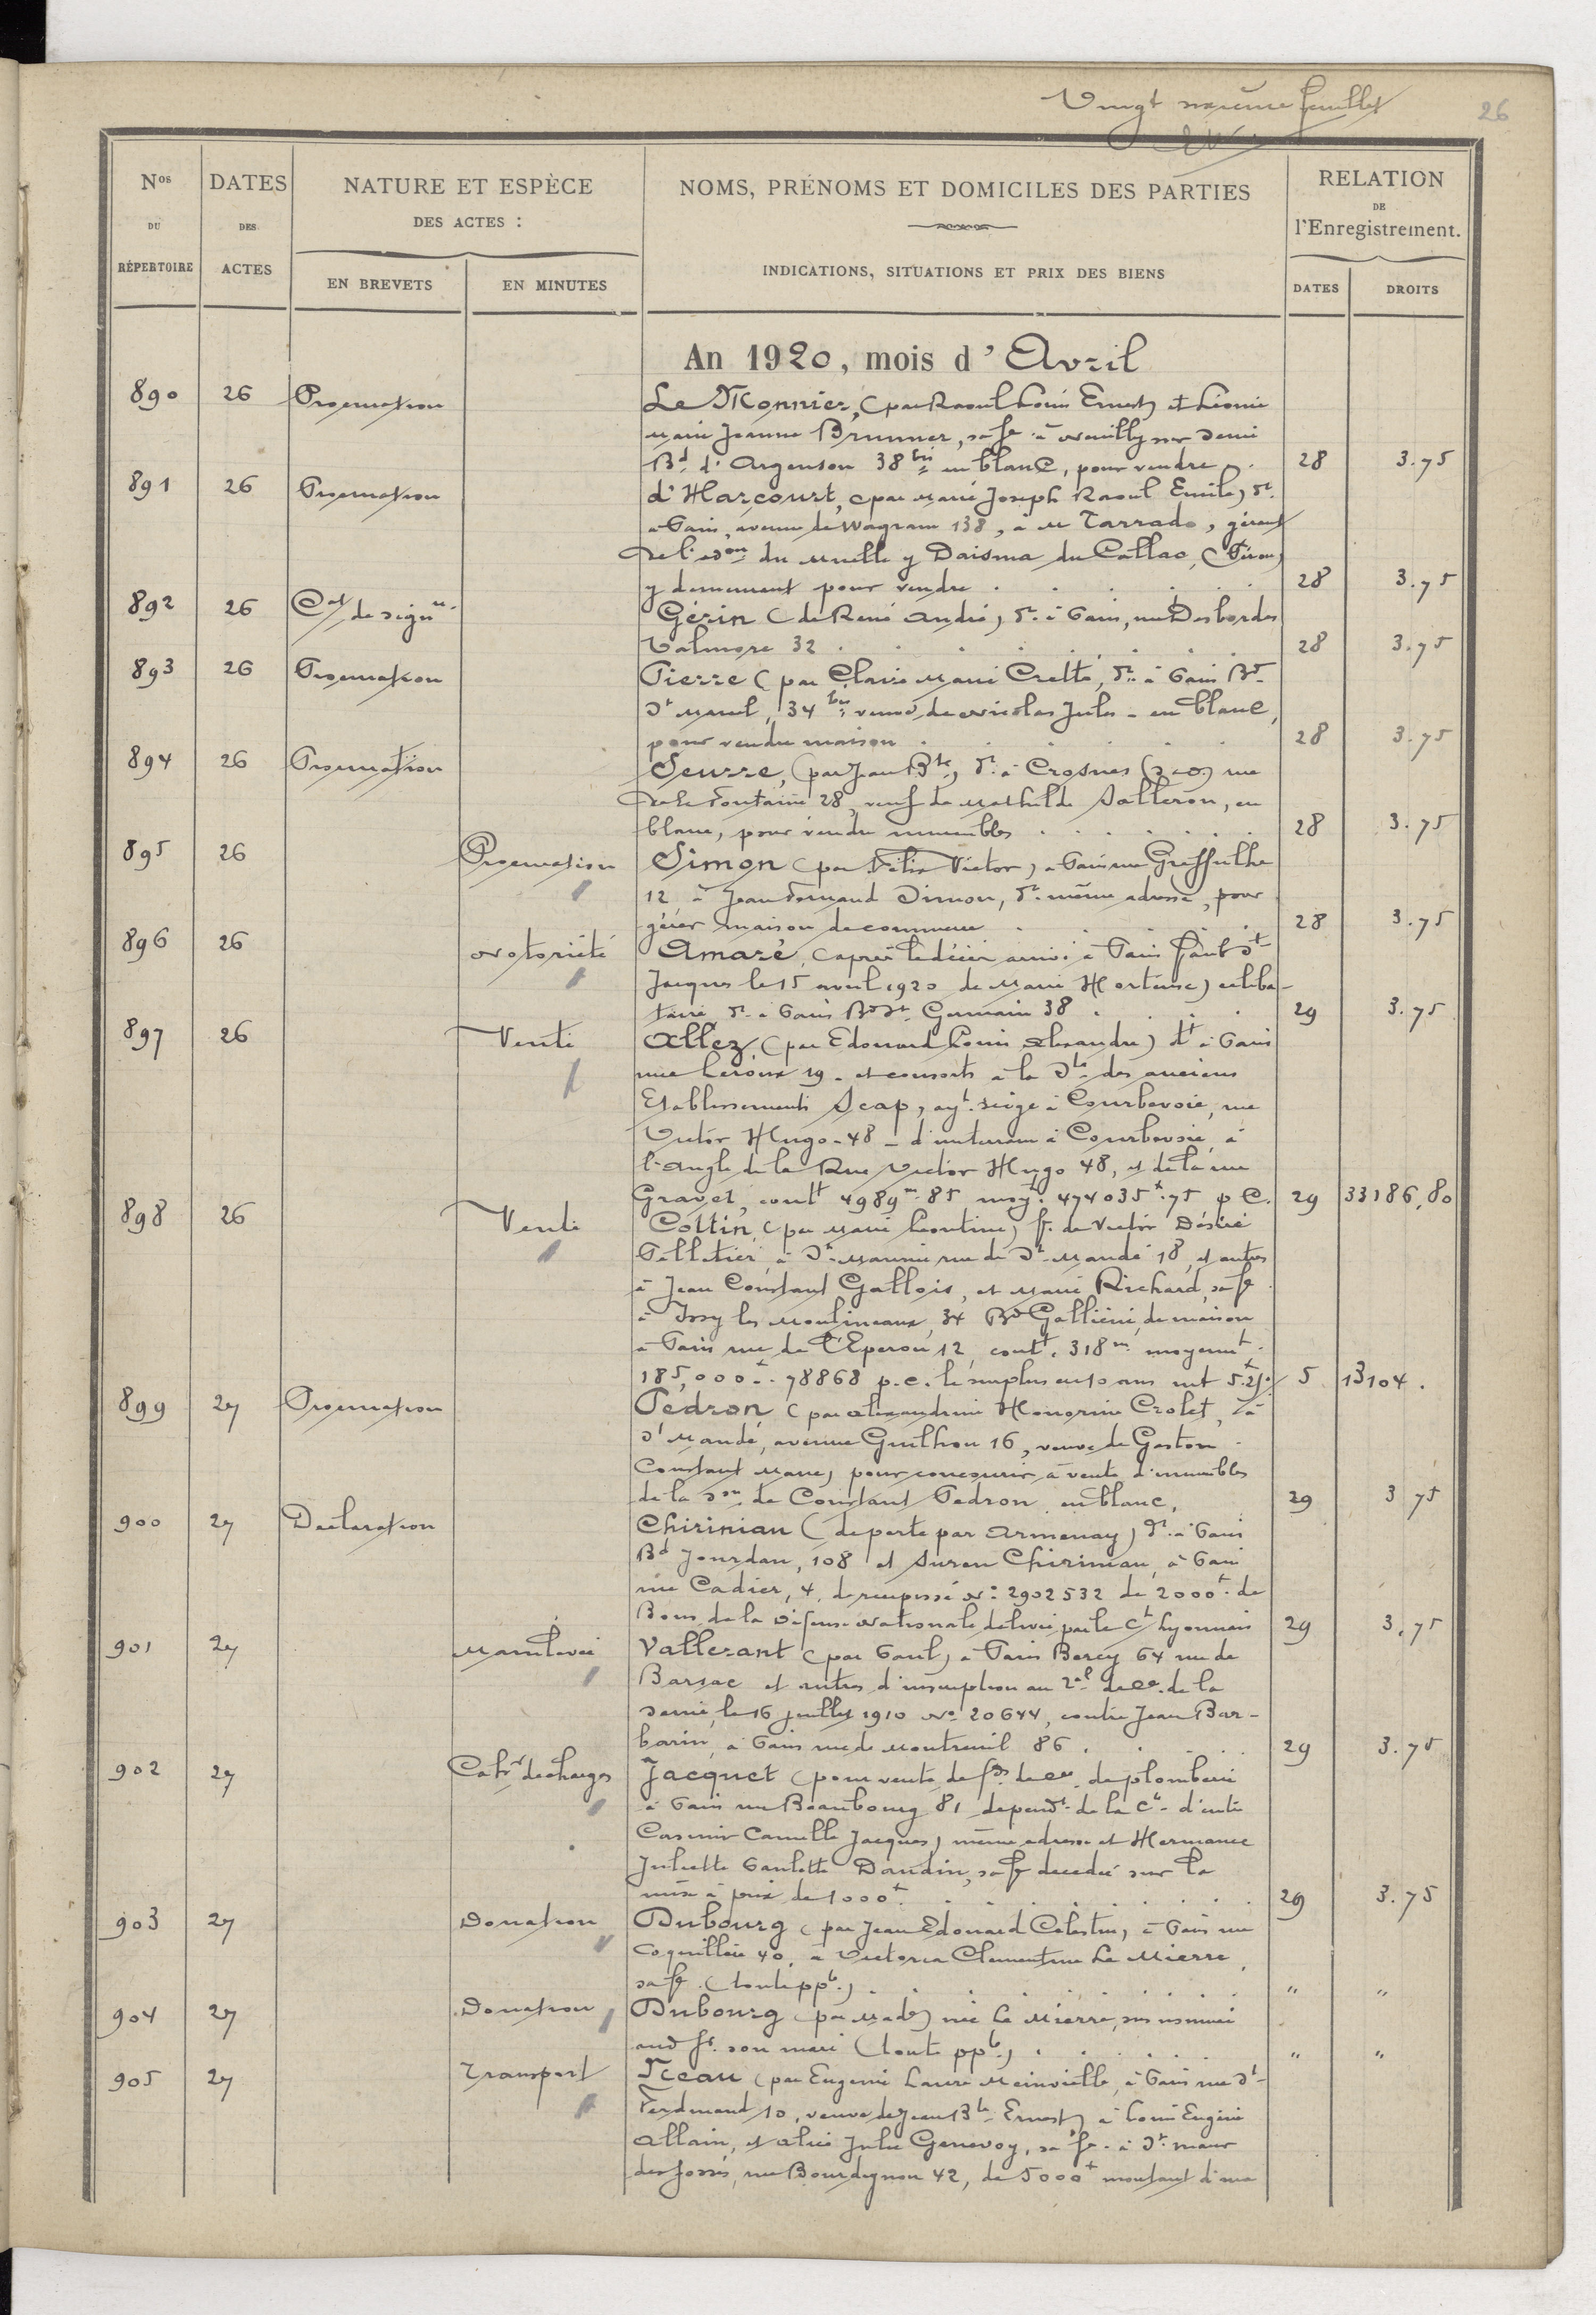 Vingt sixième feuillet
26
Nos DU RÉPERTOIRE
DATES DES ACTES
NATURE ET ESPÈCE DES ACTES :
EN BREVETS
EN MINUTES
NOMS, PRÉNOMS ET DOMICILES DES PARTIES
INDICATIONS, SITUATIONS ET PRIX DES BIENS
RELATION DE l'Enregistrement.
DATES
DROITS
An 1920, mois d'Avril
890 26 Procuration Le Monnier, (par Raoul Louis Ernest) et Léonie
Marie Jeanne Brunner, sa fe à Neuilly sur Seine
Bd d'Argenson 38 bis en blanc, pour vendre 28 3.75
891 26 Procuration d'Harcourt, (par Marie Joseph Raoul Emile) dt
à Paris, avenue de Wagram 138, à M Tarrado, gérant
de l' du Muelle y Darsena du Callao, (Pérou)
y demeurant pour vendre 28 3.75
892 26 Cat de signre Gérin (de René André) dt à Paris, rue Desbordes
Valmore 32 28 3.75
893 26 Procuration Pierre (par Claire Marie Crette, dt à Paris Bd
St Marcel, 34 bis veuve de Nicolas Jules - en blanc,
pour vendre maison 28 3.75
894 26 Procuration Seurre, (par Jean Bte), dt à Crosnes (S-O) rue
de la Fontaine 28, veuf de Mathilde Salleron, en
blanc, pour vendre immeubles 28 3.75
895 26 Procuration Simon (par Félix Victor) à Paris rue Greffulhe
12, à Jean Fernand Simon, dt même adresse, pour
gérer maison de commerce 28 3.75
896 26 Notoriété Amaré, (après le décès arrivé à Paris faubg St
Jacques le 15 avril 1920 de Marie Hortense) céliba-
taire dt à Paris Bd St Germain 38 29 3.75
897 26 Vente Allez, (par Edouard Louis Alexandre) dt à Paris
rue Leroux 19 - et consorts à la Sté des anciens
Etablissements Scap, ayt siège à Courbevoie, rue
Victor Hugo - 48 - d'un terrain à Courbevoie, à
l'angle de la Rue Victor Hugo 48, et de la rue
Gravet, contt 4989m.85 moyt 474035f.75 p C. 29 33186,80
898 26 Vente Cottin, (par Marie Léontine) fe de Victor Désiré
Pelletier, à St Maurice rue de St Mandé 18, et autres
à Jean Constant Gallois, et Marie Richard, sa fe
à Issy les Moulineaux, 34 Bd Galliéni, de maison
à Paris rue de l'Eperon 12, contt. 318m. moyennt.
185,000f. 78868 p.c. le surplus en 10 ans int 5.25% 5 13104.
899 27 Procuration Pedron (par Alexandrine Honorine Crolet, à
St Mandé, avenue Guilhou 16, veuve de Gaston
Constant Marie) pour concourir à vente d'immeubles
de la son de Constant Pedron en blanc, 29 3 75
900 27 Déclaration Chirinian (de perte par Armenay) dt à Paris
Bd Jourdan, 108 et Suren Chirinian, à Paris
rue Cadier, 4, de récépissé No 2902532 de 2000f. de
Bons de la Défense Nationale délivré par le Ct Lyonnais 29 3.75
901 27 Mainlevée Vallerant (par Paul) à Paris Bercy 64 rue de
Barsac et autres d'inscription au Tal de Ce de la
Seine, le 16 juillet 1910 No 20644, contre Jean Bar-
barin, à Paris rue de Montreuil 86. 29 3.75
902 27 Cahr de charges Jacquet (pour vente de fds de Ce de plomberie
à Paris rue Beaubourg 81 dépendt de la Cté d'entre
Casimir Camille Jacquet) même adresse et Hermance
Juliette Paulette Dandin, sa fe décédée sur la
mise à prix de 1000f 29 3.75
903 27 Donation Dubourg (par Jean Edouard Célestin) à Paris rue
Coquillère 40, à Victoria Clémentine Le Mierre,
sa fe (toute ppté) " "
904 27 Donation Dubourg (par Made) née Le Mierre, sus nommée
aud Sr. son mari (toute ppté) " "
905 27 Transport Réau (par Eugénie Laure Meinvielle, à Paris rue St
Ferdinand 10, veuve de Jean Bte Ernest) à Louis Eugène
Allain, et Alice Julie Genevoy, sa fe - à St Maur
des fossés, rue Bourdignon 42, de 5000f montant d'une